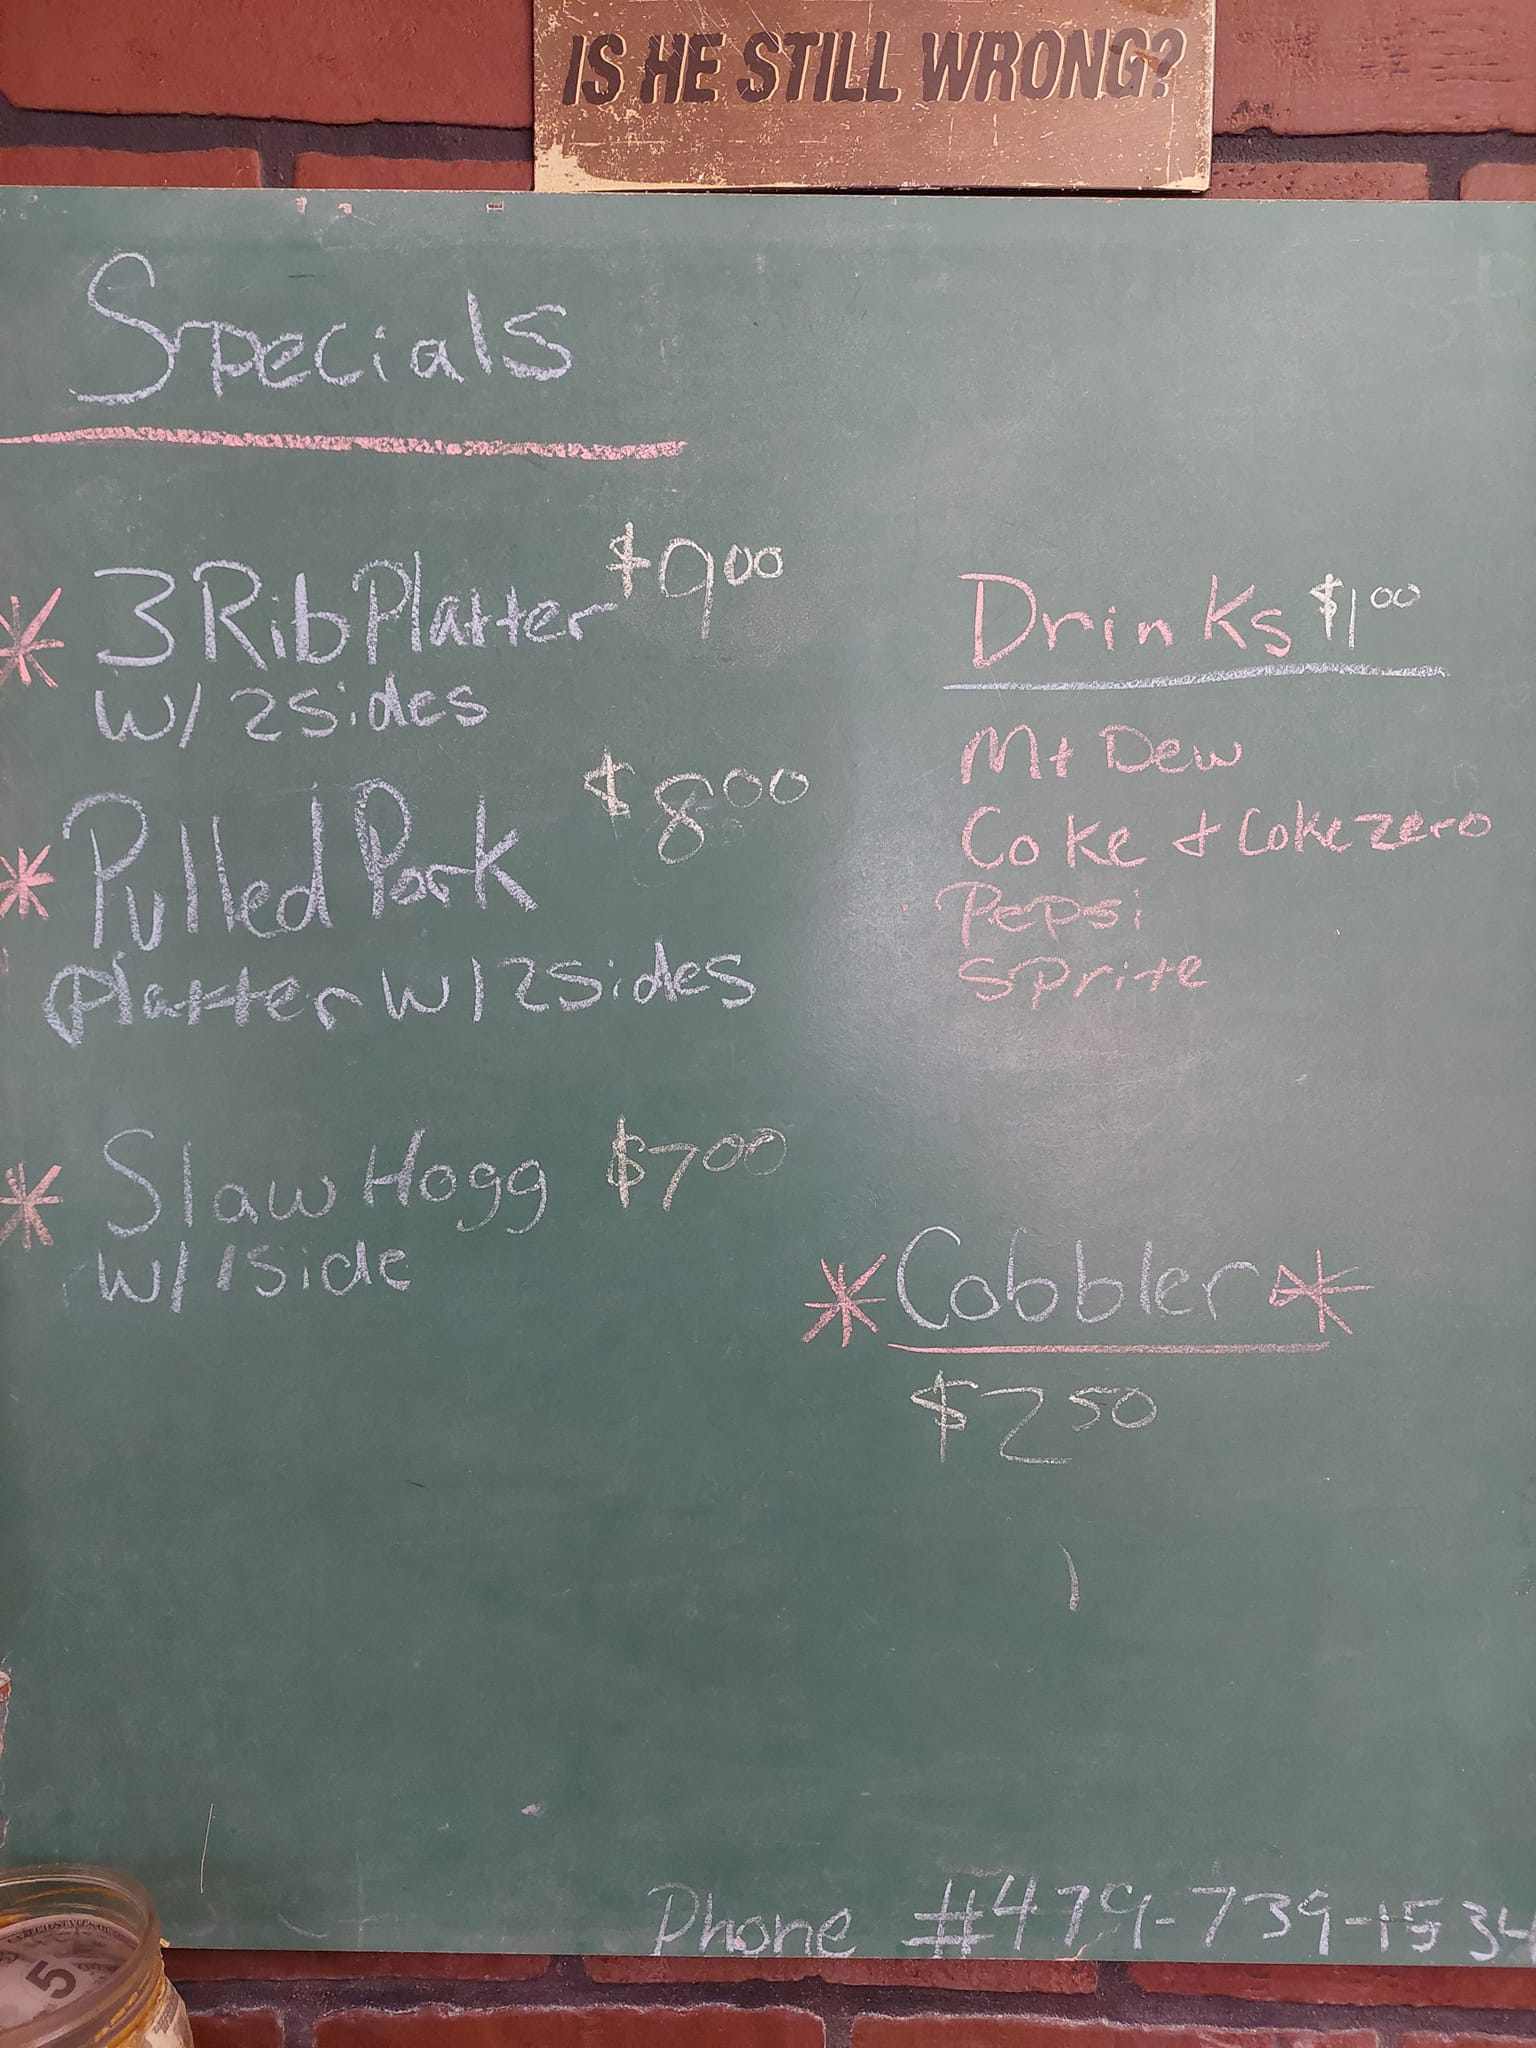 IS HE STILL WRONG?
Specials
3 Rib Platter $9.00
w/ 2 sides
Pulled Pork $8.00
Platter w/ 2 sides
Slaw Hogg $7.00
w/ 1 side
Drinks $1.00
Mt Dew
Coke & Coke zero
Pepsi
Sprite
Cobbler
$2.50
Phone #479-739-1534
5